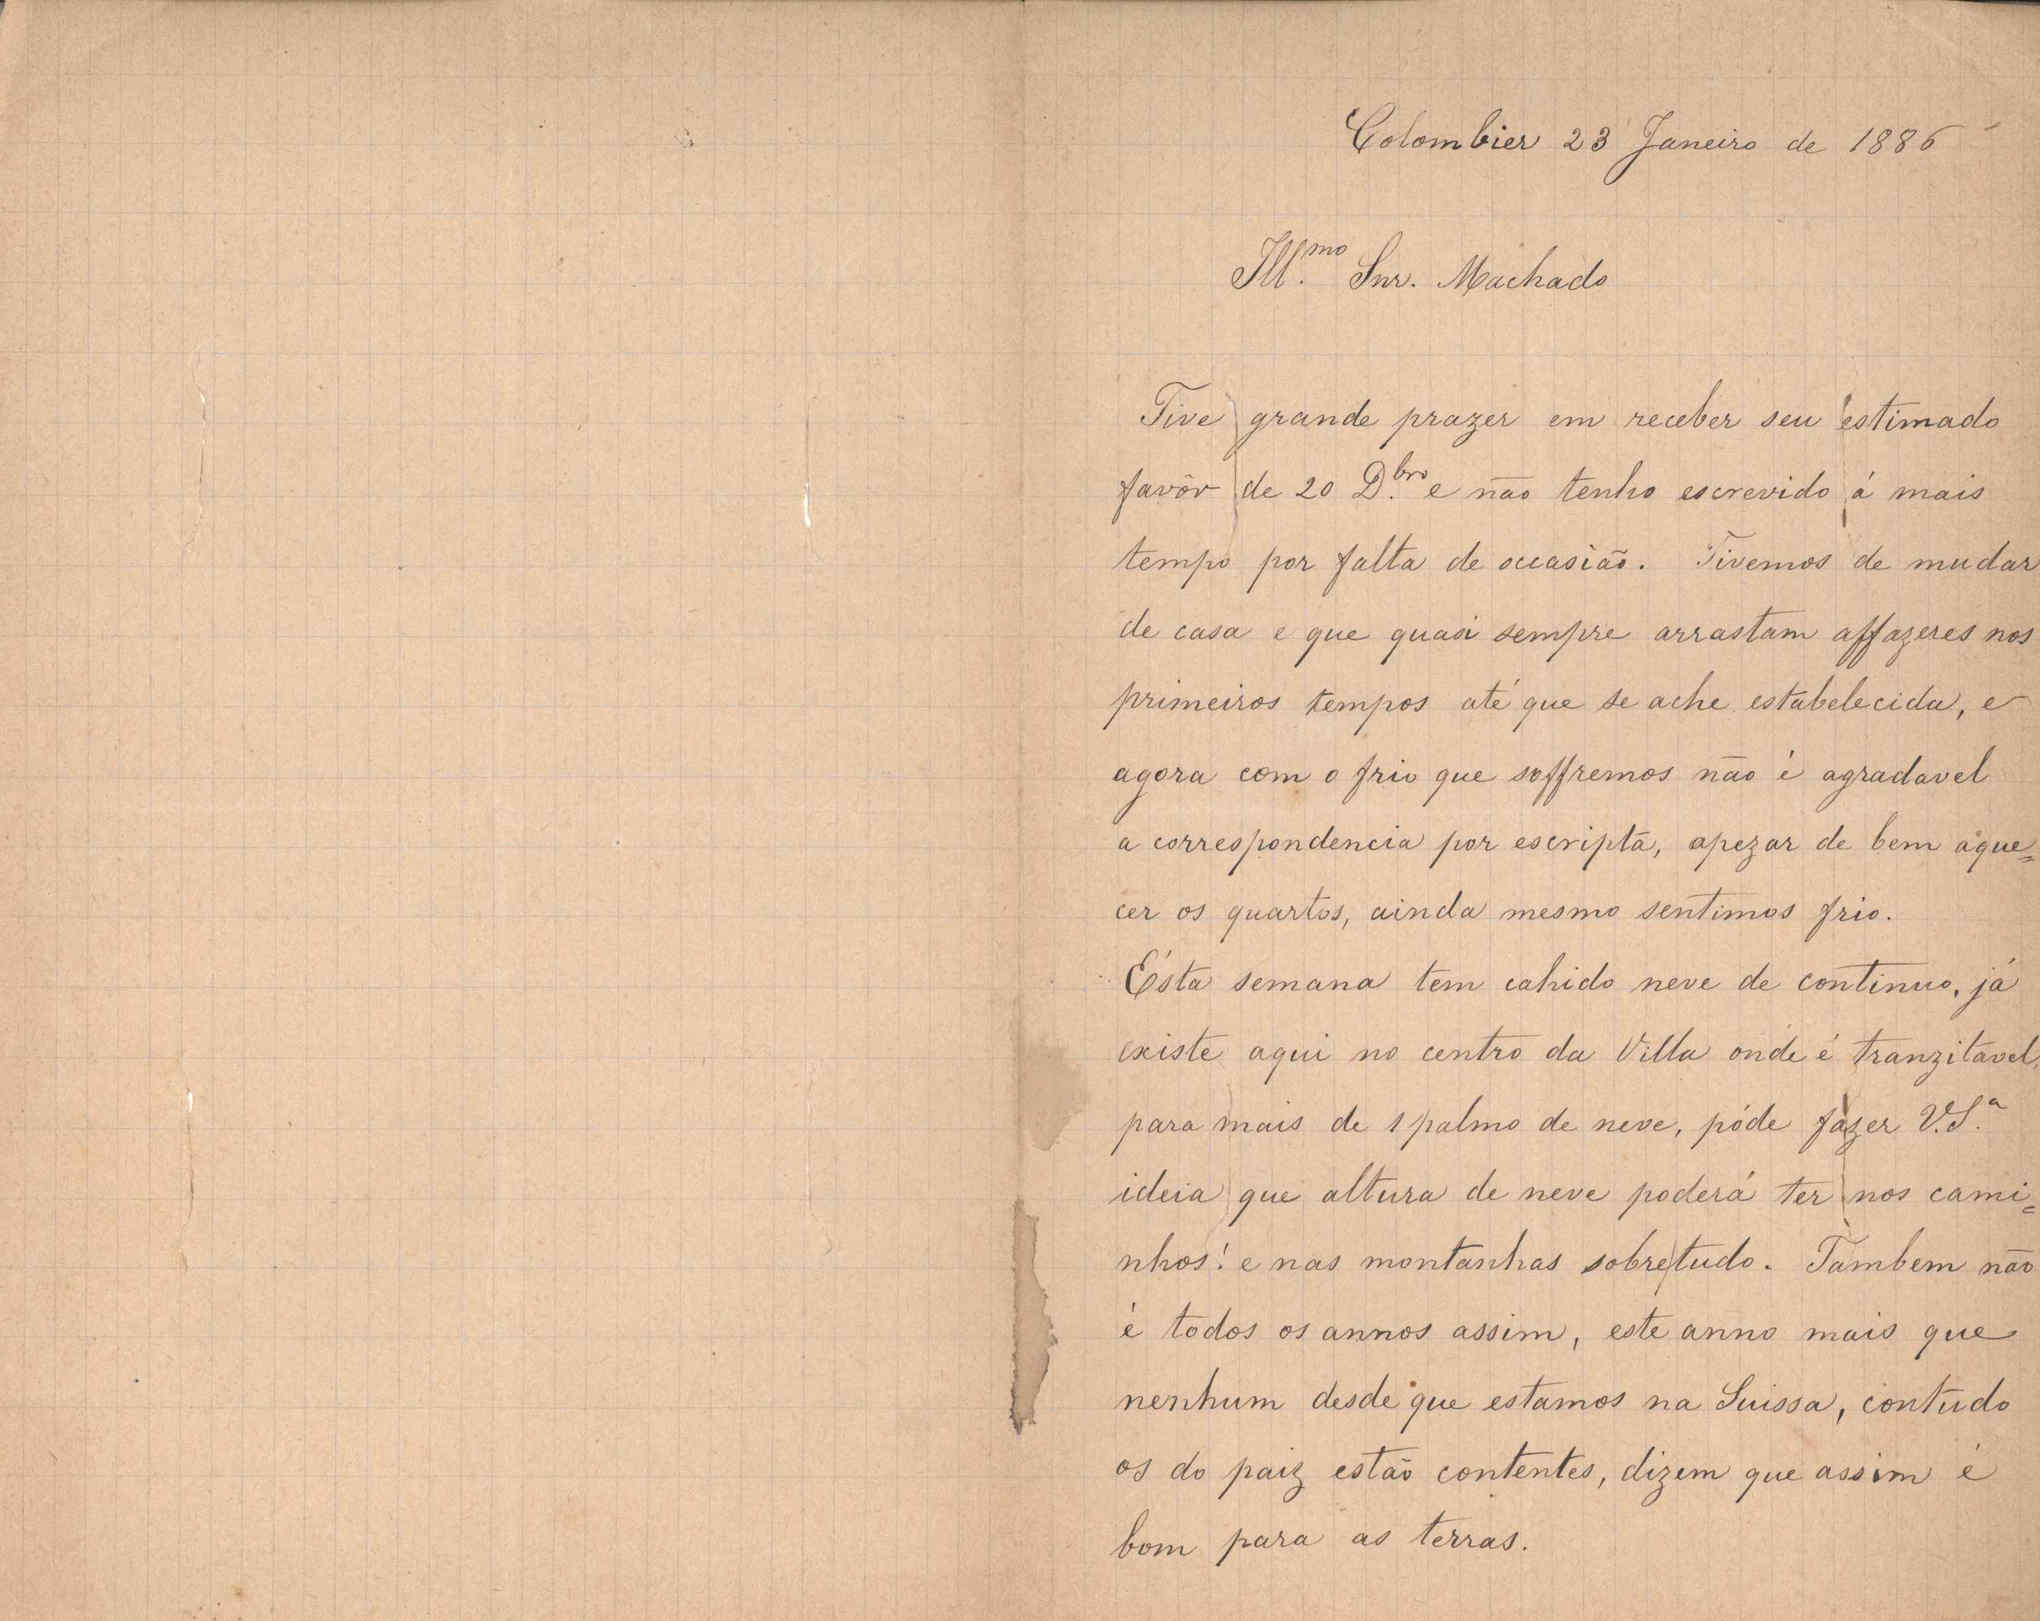 Colombier 23 Janeiro de 1886
Ill.mo Snr. Machado
Tive grande prazer em receber seu estimado
favôr de 20 D.bro e não tenho escrevido á mais
tempo por falta de occasião. Tivemos de mudar
de casa e que quasi sempre arrastam affazeres nos
primeiros tempos até que se ache estabelecida, e
agora com o frio que soffremos não é agradavel
a correspondencia por escripta, apezar de bem aque=
cer os quartos, ainda mesmo sentimos frio.
Ésta semana tem cahido neve de continuo, já
existe aqui no centro da Villa onde é tranzitavel,
para mais de 1 palmo de neve, póde fazer V.S.a
ideia que altura de neve poderá ter nos cami=
nhos! e nas montanhas sobretudo. Tambem não
é todos os annos assim, este anno mais que
nenhum desde que estamos na Suissa, contudo
os do paiz estão contentes, dizem que assim é
bom para as terras.